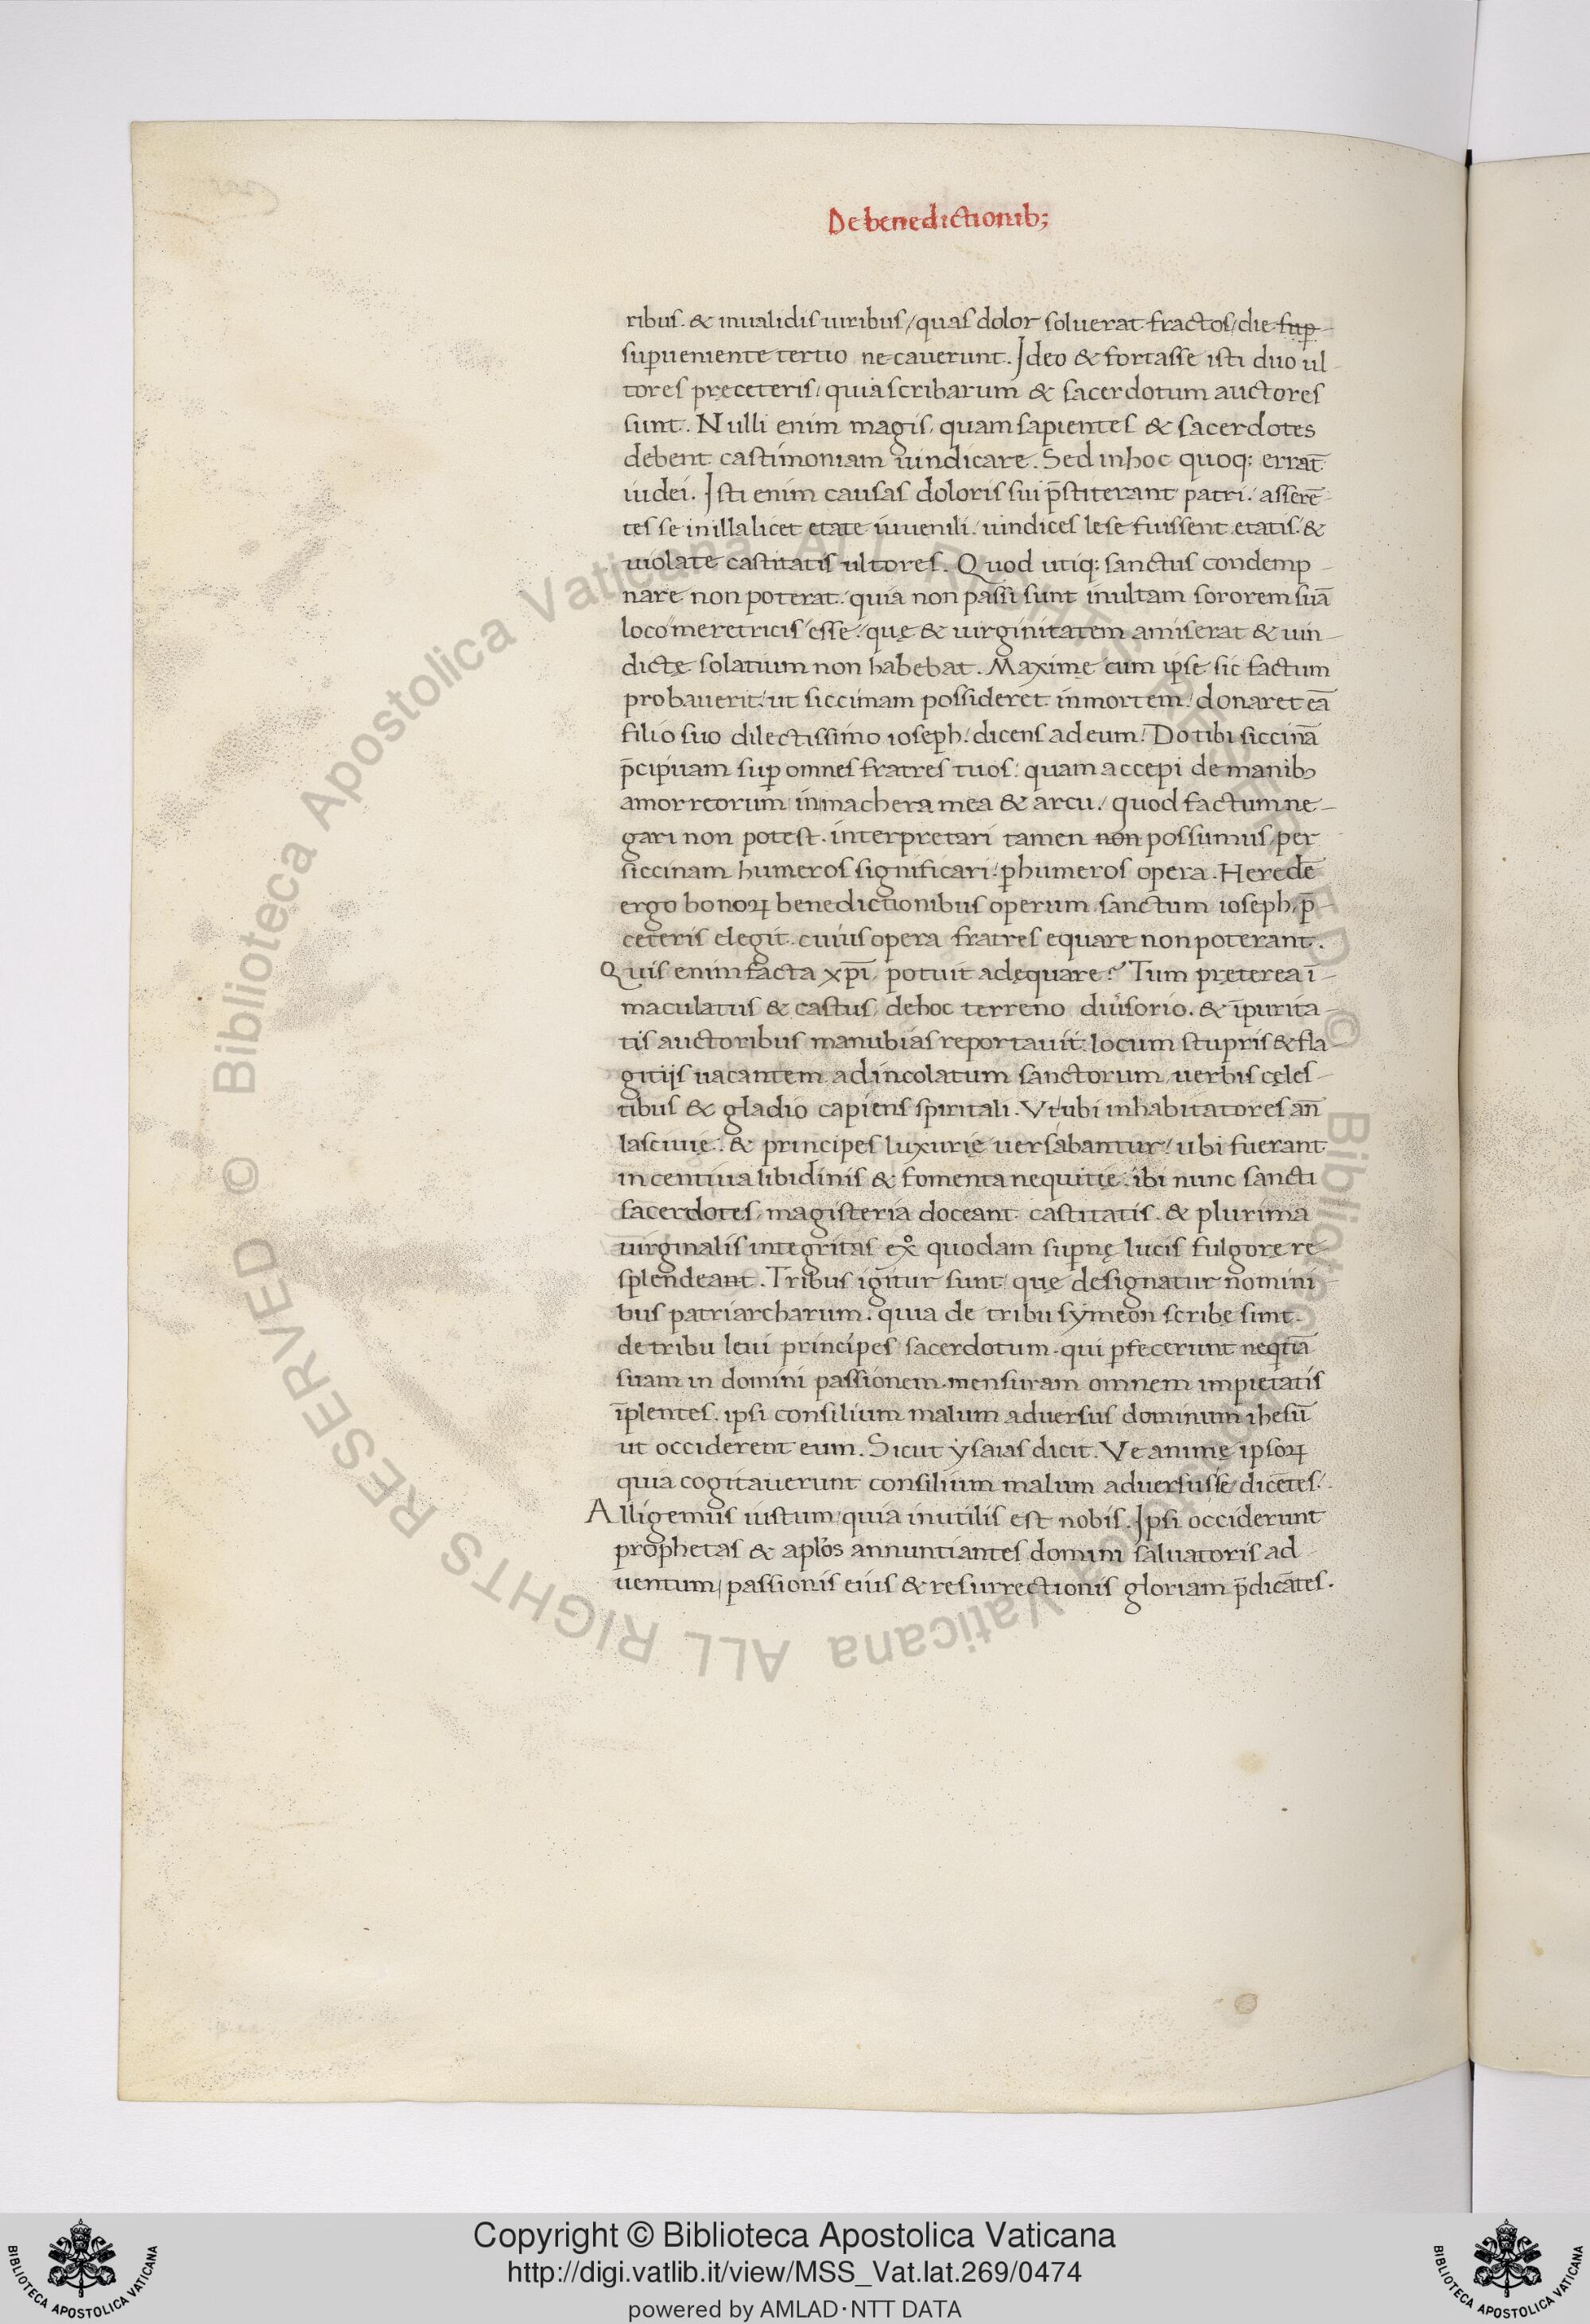 De benedictionib;
ribus. & inualidis uiribus / quas dolor soluerat fractos / die sup̱
sup̱ueniente tertio necauerunt. Ideo & fortasse isti duo ul-
tores pręceteris / quia scribarum & sacerdotum auctores
sunt. Nulli enim magis / quam sapientes & sacerdotes
debent castimoniam uindicare. Sed in hoc quoq: errāt
iudei. Isti enim causas doloris sui p̄stiterant patri / asserē-
tes se in illa licet etate iuuenili / uindices lese fuissent etatis / &
uiolate castitatis ultores. Quod utiq: sanctus condemp-
nare non poterat / quia non passi sunt inultam sororem suā
loco meretricis esse / quę & uirginitatem amiserat & uin-
dictę solatium non habebat. Maximę cum ipse sic factum
probauerit / ut siccimam possideret in mortem / donaret eā
filio suo dilectissimo ioseph / dicens ad eum / Do tibi siccinā
p̄cipuam sup̱ omnes fratres tuos / quam accepi de manibꝰ
amorreorum in machera mea & arcu / quod factum ne-
gari non potest. interpretari tamen non possumus / per
siccinam humeros significari / ꝑ humeros opera. Heredē
ergo bonoꝝ benedictionibus operum sanctum ioseph / p̄
ceteris elegit. cuius opera fratres equare non poterant.
Quis enim facta xp̄i potuit adęquare? Tum pręterea ī-
maculatus & castus / de hoc terreno diu͛sorio. & īpurita-
tis auctoribus manubias reportauit / locum stupris & fla-
gitijs uacantem ad incolatum sanctorum uerbis cęles-
tibus & gladio capiens spiritali. Vt ubi inhabitatores an̄
lasciuię. & principes luxurię uersabantur / ubi fuerant
incentiua libidinis & fomenta nequitię. ibi nunc sancti
sacerdotes magisteria doceant castitatis. & plurima
uirginalis integritas ex̊ quodam sup̱nę lucis fulgorę re-
splendeant. Tribus igitur sunt quę designatur nomini-
bus patriarcharum. quia de tribu symeon scribę sunt.
de tribu leui principes sacerdotum. qui ꝑfecerunt neqtiā
suam in domini passionem. mensuram omnem impietatis
īplentes. ipsi consilium malum aduersus dominum ihesū
ut occiderent eum. Sicut ysaias dicit. Ve animę ipsoꝝ
quia cogitauerunt consilium malum aduersus se / dicētes.
Alligemus iustum / quia inutilis est nobis. Ipsi occiderunt
prophetas & apl̄os annuntiantes domini saluatoris ad-
uentum / passionis eius & resurrectionis gloriam p̄dicātes.
Copyright © Biblioteca Apostolica Vaticana
http://digi.vatlib.it/view/MSS_Vat.lat.269/0474
powered by AMLAD·NTT DATA